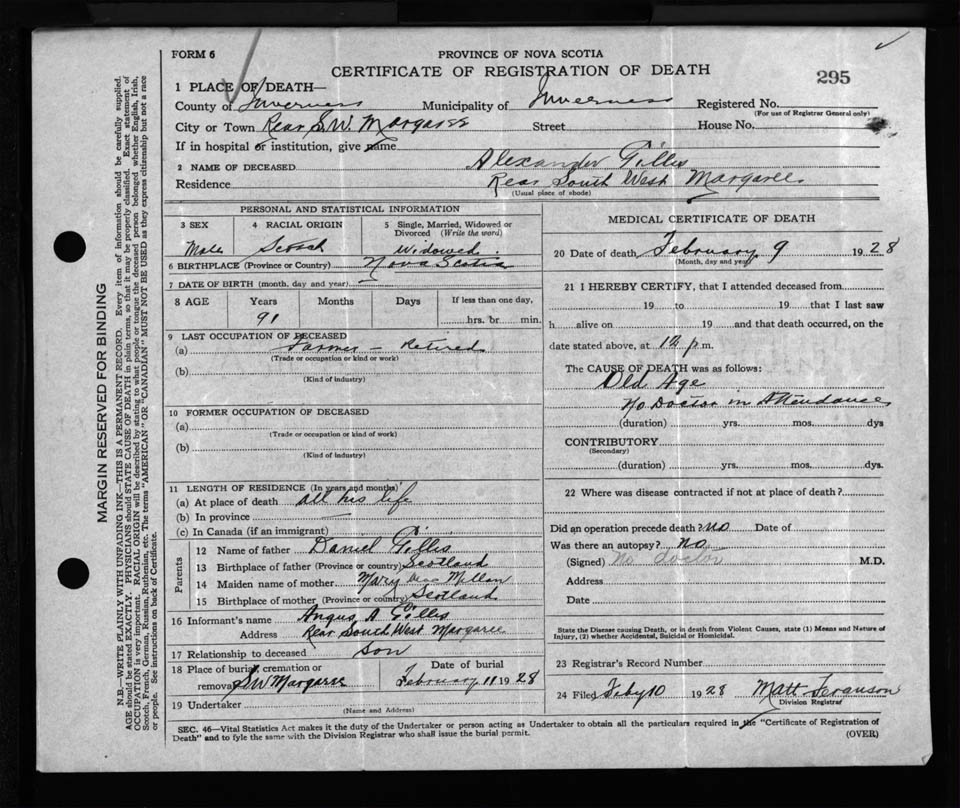 FORM 6
PROVINCE OF NOVA SCOTIA
CERTIFICATE OF REGISTRATION OF DEATH
295
1 PLACE OF DEATH—
County of Inverness Municipality of Inverness Registered No.
(For use of Registrar General only)
City or Town Rear S.W. Margaree Street House No.
If in hospital or institution, give name
2 NAME OF DECEASED Alexander Gillis
Residence Rear South West Margaree
(Usual place of abode)
PERSONAL AND STATISTICAL INFORMATION
3 SEX 4 RACIAL ORIGIN 5 Single, Married, Widowed or Divorced (Write the word)
Male Scotch Widowed
6 BIRTHPLACE (Province or Country) Nova Scotia
7 DATE OF BIRTH (month, day and year) —
8 AGE Years Months Days If less than one day,
91 hrs. or min.
9 LAST OCCUPATION OF DECEASED
(a) Farmer – Retired
(Trade or occupation or kind of work)
(b)
(Kind of industry)
10 FORMER OCCUPATION OF DECEASED
(a)
(Trade or occupation or kind of work)
(b)
(Kind of industry)
11 LENGTH OF RESIDENCE (In years and months)
(a) At place of death all his life
(b) In province —
(c) In Canada (if an immigrant)
Parents
12 Name of father Daniel Gillis
13 Birthplace of father (Province or country) Scotland
14 Maiden name of mother Mary Mac Millan
15 Birthplace of mother (Province or country) Scotland
16 Informant's name Angus A Gillis
Address Rear South West Margaree
17 Relationship to deceased son
18 Place of burial, cremation or removal S W Margaree
Date of burial February 11 1928
19 Undertaker
(Name and Address)
MEDICAL CERTIFICATE OF DEATH
20 Date of death February 9 1928
(Month, day and year)
21 I HEREBY CERTIFY, that I attended deceased from
19 to 19 that I last saw
h alive on 19 and that death occurred, on the
date stated above, at 12 p m.
The CAUSE OF DEATH was as follows:
Old Age
No Doctor in Attendance
(duration) yrs. mos. dys
CONTRIBUTORY
(Secondary)
(duration) yrs. mos. dys.
22 Where was disease contracted if not at place of death?
Did an operation precede death? No Date of
Was there an autopsy? no
(Signed) No Doctor M.D.
Address
Date
State the Disease causing Death, or in death from Violent Causes, state (1) Means and Nature of
Injury, (2) whether Accidental, Suicidal or Homicidal.
23 Registrar's Record Number
24 Filed Feby 10 1928 Matt Ferguson
Division Registrar
SEC. 46—Vital Statistics Act makes it the duty of the Undertaker or person acting as Undertaker to obtain all the particulars required in the "Certificate of Registration of
Death" and to fyle the same with the Division Registrar who shall issue the burial permit.
(OVER)
MARGIN RESERVED FOR BINDING
N.B.—WRITE PLAINLY WITH UNFADING INK—THIS IS A PERMANENT RECORD. Every item of information should be carefully supplied.
AGE should be stated EXACTLY. PHYSICIANS should STATE CAUSE OF DEATH in plain terms, so that it may be properly classified. Exact statement of
OCCUPATION is very important. RACIAL ORIGIN will be described by stating to what people or tongue the deceased person belonged whether English, Irish,
Scotch, French, German, Russian, Ruthenian, etc. The terms "AMERICAN" OR "CANADIAN" MUST NOT BE USED as they express citizenship but not a race
or people. See instructions on back of Certificate.